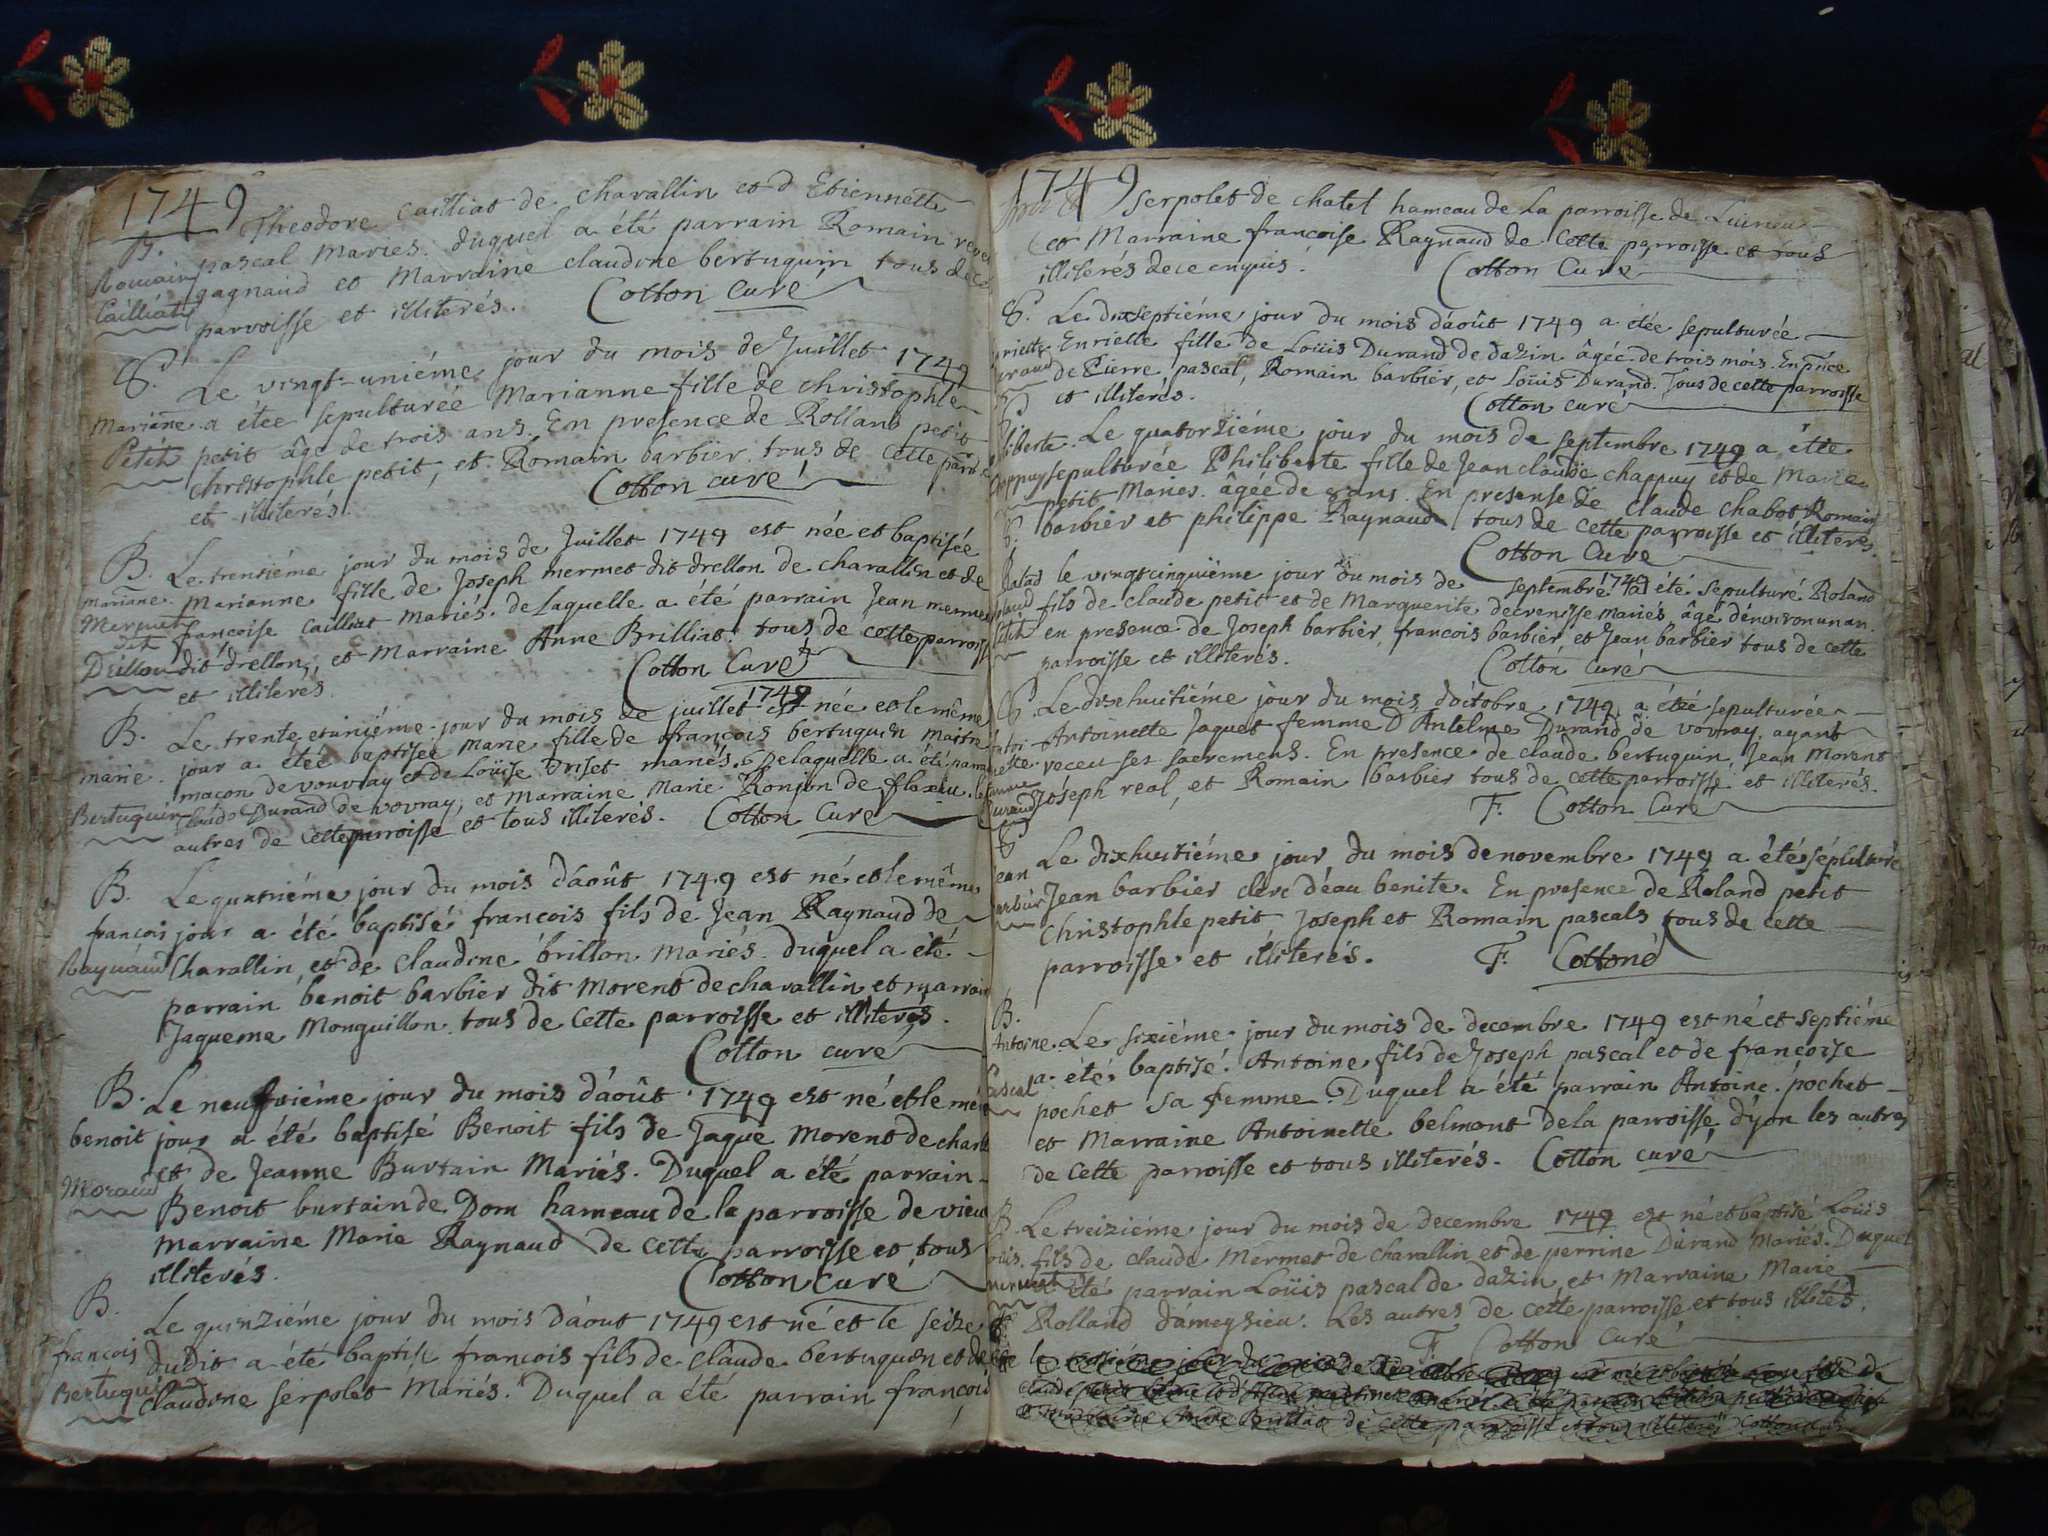 1749
B. Theodore Cailliat de charallin et d Etiennette
Romain pascal Mariés. duquel a été parrain Romain
Cailliat gagnaud et Marraine claudine bertuquin tous de
parroisse et illiterés. Cotton Curé
S. Le vingt-uniéme jour du mois de Juillet 1749
Mariane a étée sepulturée Marianne fille de christophle
Petit petit âge de trois ans. En presence de Rolland petit
christophle petit, et Romain barbier tous de cette
et illiterés. Cotton curé
B. Le trentiéme jour du mois de Juillet 1749 est née et baptisée
mariane. Marianne fille de Joseph mermet dit drellon de charallin et de
Mermet françoise cailliat mariés. de Laquelle a été parrain Jean mermet
dit
Drillon dit drellon, et Marraine Anne Brilliat. tous de cette parroisse
et illiterés Cotton Curé
B. Le trente et uniéme jour du mois de juillet 1749 est née et le même
marie. jour a étée baptisée marie fille de françois bertuquin maitre
maçon de vouvray et de Loüise mariés. de laquelle a été
Bertuquin Claude Durand de vovray, et marraine Marie de
autres de Cette parroisse et tous illiterés. Cotton Curé
B. Le quatriéme jour du mois d'août 1749 est né et le même
françois jour a été baptisé françois fils de Jean Raynaud de
Raynaud Charallin et de claudine brillon mariés. Duquel a été
parrain benoit barbier dit morent de charallin et
Jaqueme Monguillon tous de Cette parroisse et illiterés.
Cotton curé
B. Le neufviéme jour du mois d'août 1749 est né et le
benoit jour a été baptisé Benoit fils de Jaque Morent de
et de Jeanne Burtain Mariés. Duquel a été parrain
Moraud Benoit burtain de Dom hameau de la parroisse de vieu
marraine Marie Raynaud de cette parroisse et tous
illiterés. Cotton curé
B. Le quinziéme jour du mois d'aout 1749 est né et le seize
françois dudit a été baptisé françois fils de claude bertuquin et de
Bertuquin claudine serpolet Mariés. Duquel a été parrain françois
1749
Serpolet de chatel hameau de La parroisse de
et Marraine françoise Raynaud de cette parroisse et tous
illiterés de ce enquis. Cotton Curé
S. Le dixseptiéme jour du mois d'août 1749 a étée sepulturée
Enriette fille de Loüis Durand de dazin âgée de trois mois. En
de Pierre pascal, Romain barbier, et Loüis Durand. Tous de cette parroisse
et illiterés. Cotton curé
Le quatorziéme jour du mois de septembre 1749 a étée
sepulturée Philiberte fille de Jean claude chappuy et de Marie
petit Mariés. âgée de ans. En presense de claude chabot Romain
S. barbier et philippe Raynaud tous de cette parroisse et illiterés.
Cotton Curé
le vingtcinquiéme jour du mois de septembre 1749 a été sepulturé Roland
fils de claude petit et de Marguerite mariés âgé d'environ un an.
en presence de Joseph barbier, françois barbier, et Jean barbier tous de cette
parroisse et illiterés. Cotton Curé
S. Le dixhuitiéme jour du mois d'octobre 1749 a étée sepulturée
Antoinette Jaquet femme d'Antelme Durand de vouvray, ayant
receu ses sacremens. En presence de claude bertuquin, Jean Morent
Joseph real, et Romain barbier tous de cette parroisse et illiterés.
F. Cotton Curé
Le dixhuitiéme jour du mois de novembre 1749 a été sépulturé
Jean barbier clerc d'eau benite. En presence de Roland petit
christophle petit Joseph et Romain pascals tous de cette
parroisse et illiterés. F. Cotton
B.
Antoine Le sixiéme jour du mois de decembre 1749 est né et septiéme
a été baptisé. Antoine fils de Joseph pascal et de françoise
Pascal pochet sa femme. Duquel a été parrain Antoine pochet
et Marraine Antoinette belmont de la parroisse d'yon les autres
de Cette parroisse et tous illiterés. Cotton curé
B. Le treiziéme jour du mois de decembre 1749 est né et baptisé Loüis
fils de claude Mermet de charallin et de perrine Durand Mariés. Duquel
a été parrain Loüis pascal de dazin et Marraine Marie
Rolland d'ameyzieu. Les autres de cette parroisse et tous
F. Cotton Curé
de cette parroisse et tous illiterés